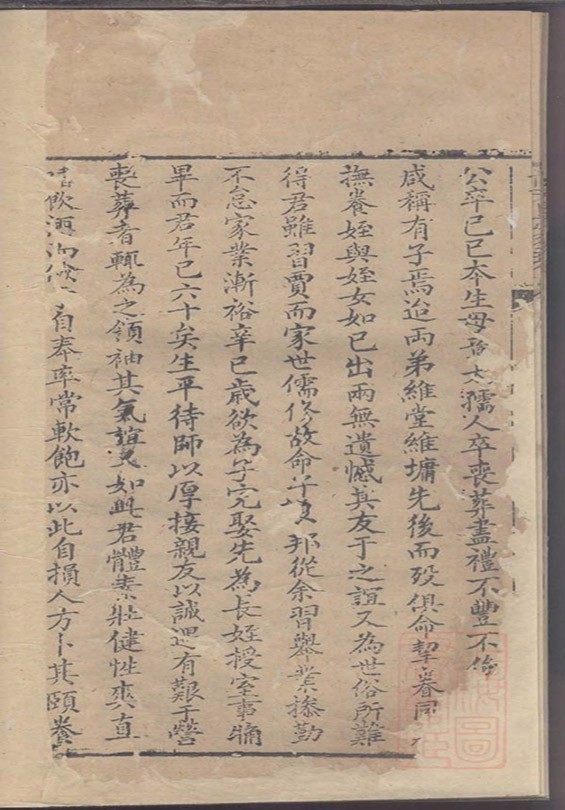 公卒己巳本生母太孺人卒喪葬盡禮不豐不儉
咸稱有子焉迨両弟維堂維墉先後而歿俱命挈眷同
撫養姪與姪女如已出兩無遺憾其友于之誼又為世俗所難
得君雖習賈而家世儒修故命子邦從余習舉業捺勤
不怠家業漸裕辛巳歲欲為子完娶先為長姪授室事甫
畢而君年已六十矣生平待師以厚接親友以誠遇有艱于營
喪葬者輒為之領袖其氣誼又如此君體素壯健性爽直
嗜飲酒自奉率常軟飽亦以此自損人方卜其頤養